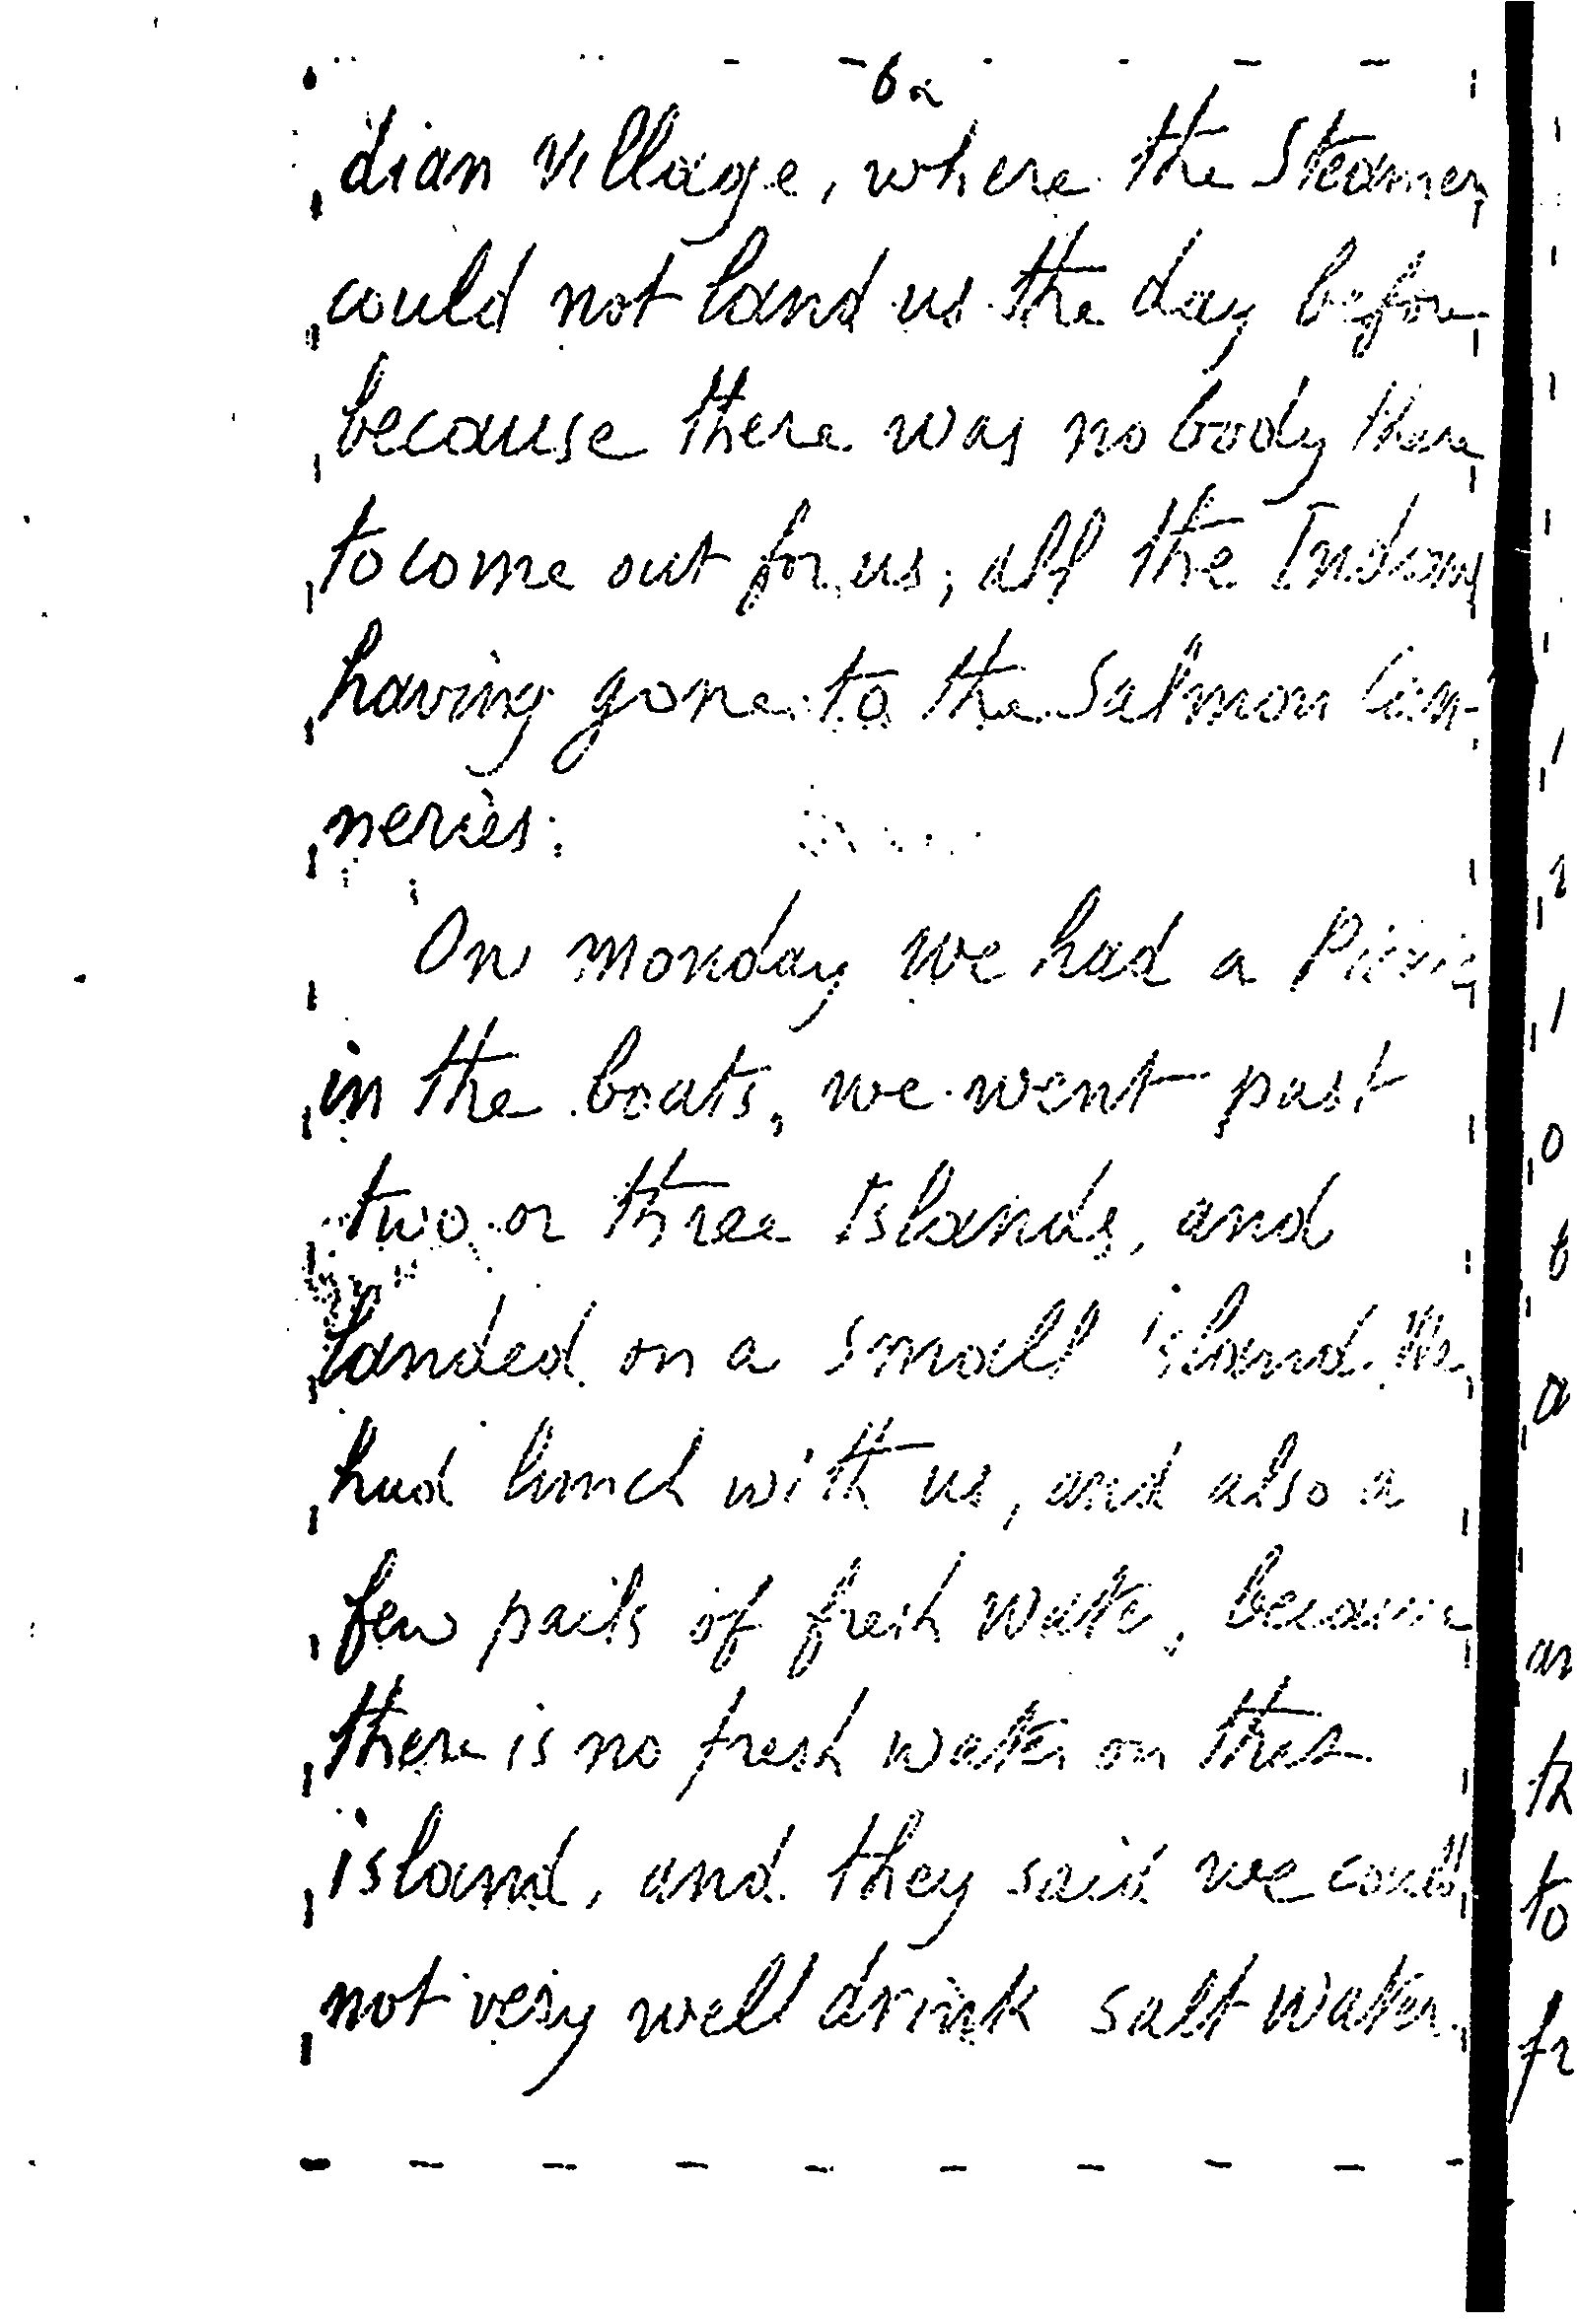 6a
dian Village, where the Steamer
could not land us the day before
because there was nobody there
to come out for us, all the Indians
having gone to the Salmon Can-
neries.
On monday we had a Picnic
in the boats, we went past
two or three Islands, and
landed on a small island. We
had lunch with us, and also a
few pails of fresh water, because
there is no fresh water on these
island, and they said we could
not very well drink salt water.